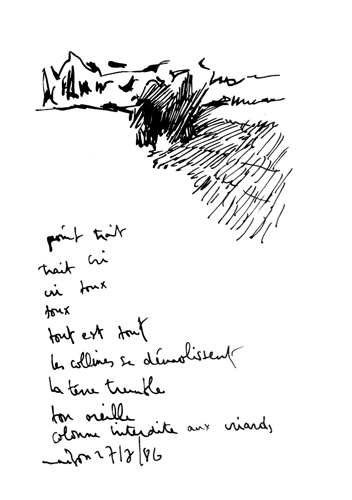 point trait
trait cri
cri toux
toux
tout est tout
les collines se démolissent
la terre tremble
ton oreille
colonne interdite aux criards
27/7/86